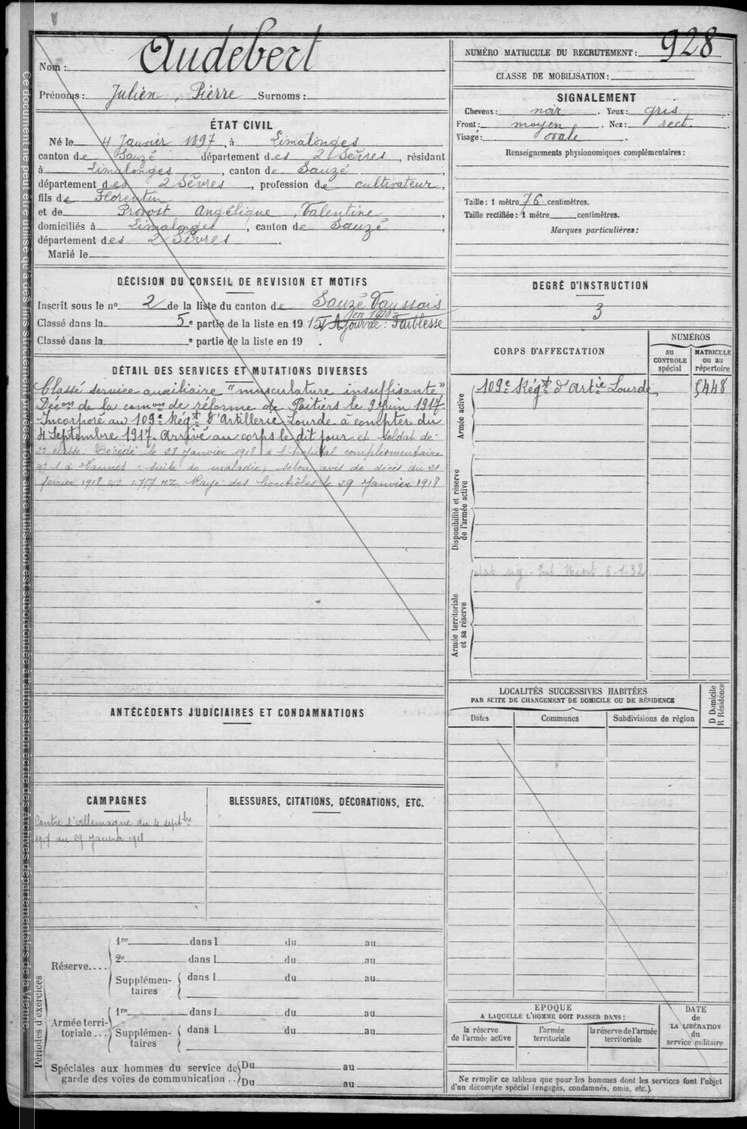 Audebert
Nom :
Prénoms : Julien, Pierre Surnoms :
ÉTAT CIVIL
Né le 4 Janvier 1897, à Limalonges
canton de Sauzé département des 2 Sèvres, résidant
à Limalonges, canton de Sauzé
département des 2 Sèvres, profession de cultivateur,
fils de Florentin
et de Provost Angélique, Valentine
domiciliés à Limalonges, canton de Sauzé
département des 2 Sèvres
Marié le
DÉCISION DU CONSEIL DE REVISION ET MOTIFS
Inscrit sous le nº 2 de la liste du canton de Sauzé Vaussais
Classé dans la 5e partie de la liste en 1915 Ajourné : Faiblesse
Classé dans la e partie de la liste en 19 .
DÉTAIL DES SERVICES ET MUTATIONS DIVERSES
Classé service auxiliaire "musculature insuffisante"
Décon de la comon de réforme de Poitiers le 9 Juin 1917.
Incorporé au 109e Régt d'Artillerie Lourde à compter du
4 Septembre 1917. Arrivé au corps le dit jour et soldat de
2e classe. Décédé le 28 Janvier 1918 à l'hôpital complémentaire
à Vannes (suite de maladie) selon avis de décès du 21
février 1918 Rayé des Contrôles le 29 Janvier 1918
ANTÉCÉDENTS JUDICIAIRES ET CONDAMNATIONS
CAMPAGNES
Contre l'Allemagne du 4 septbre
1917 au 29 Janvier 1918
BLESSURES, CITATIONS, DÉCORATIONS, ETC.
Périodes d'exercices
Réserve....
1re dans l du au
2e dans l du au
Supplémentaires dans l du au
Armée territoriale...
1re dans l du au
Supplémentaires dans l du au
Spéciales aux hommes du service de Du au
garde des voies de communication .. Du au
NUMÉRO MATRICULE DU RECRUTEMENT : 928
CLASSE DE MOBILISATION :
SIGNALEMENT
Cheveux : noir . Yeux : gris
Front : moyen . Nez : rect.
Visage : ovale .
Renseignements physionomiques complémentaires :
Taille : 1 mètre 76 centimètres.
Taille rectifiée : 1 mètre centimètres.
Marques particulières :
DEGRÉ D'INSTRUCTION
3
CORPS D'AFFECTATION
NUMÉROS
AU CONTROLE spécial
MATRICULE OU AU répertoire
Armée active
109e Régt d'Artie Lourde
5448
Disponibilité et réserve de l'armée active
Armée territoriale et sa réserve
6-1-32
LOCALITÉS SUCCESSIVES HABITÉES
PAR SUITE DE CHANGEMENT DE DOMICILE OU DE RÉSIDENCE
Dates
Communes
Subdivisions de région
D Domicile
R Résidence
EPOQUE
A LAQUELLE L'HOMME DOIT PASSER DANS :
la réserve de l'armée active
l'armée territoriale
la réserve de l'armée territoriale
DATE de LA LIBÉRATION du service militaire
Ne remplir ce tableau que pour les hommes dont les services font l'objet
d'un décompte spécial (engagés, condamnés, omis, etc.).